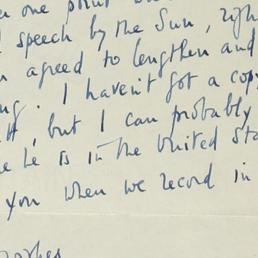 er one point
speech by the Sun, righ
agreed to lengthen and
ng. I haven't got a copy
tt, but I can probably
he is in the United Sta
you when we record in